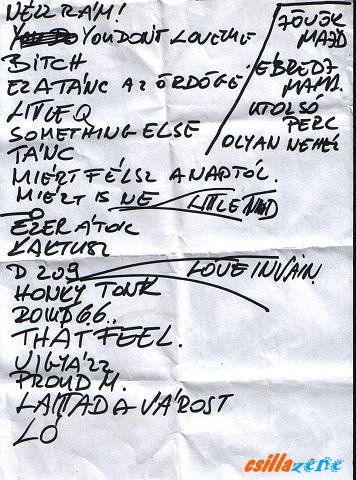 NÉZZ RÁM!
YOU DONT LOVE ME
BITCH
EZ A TÁNC AZ ÖRDÖGÉ
LITTLE Q
SOMETHING ELSE
TÁNC
MIÉRT FÉLSZ A NAPTÓL.
MIÉRT IS NE LITTLE RED
LÓ
EZER ÁTOK
KAKTUSZ
D 209 LOVE IN VAIN
HONKY TONK
ROAD 66.
THAT FEEL.
VIGYÁZZ
PROUD M.
LÁTTAD A VÁROST
LÓ
JÖVÖK
MAJD
ÉBREDJ
MAMA.
UTOLSÓ
PERC
OLYAN NEHÉZ
csillazene